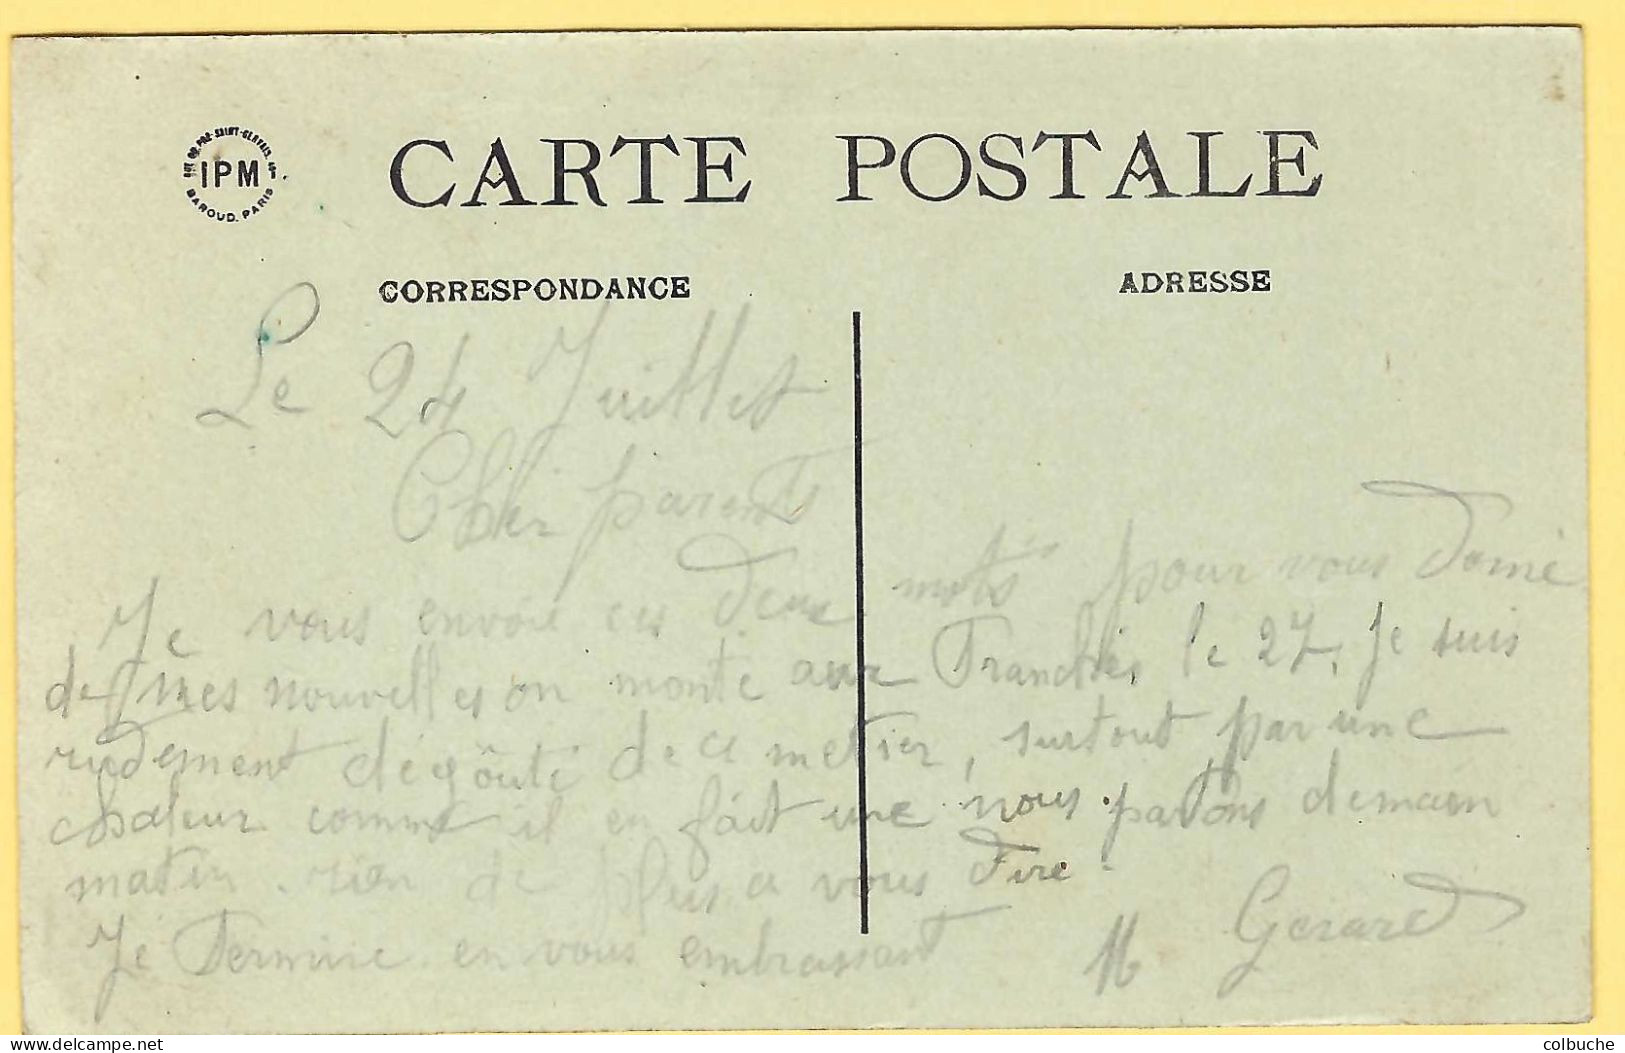 RUE DU PRÉ-SAINT-GERVAIS
IPM
BAROUD. PARIS
CARTE POSTALE
CORRESPONDANCE
ADRESSE
Le 24 Juillet
Cher parents
Je vous envoie ces deux mots pour vous donné
de mes nouvelles on monte aux Tranchés, le 27, Je suis
rudement dégôuté de ce metier, surtout par une
chaleur comme il en fait une nous partons demain
matin. rien de plus a vous dire.
Je Termine en vous embrassant
M Gerard
delcampe.net
colbuche